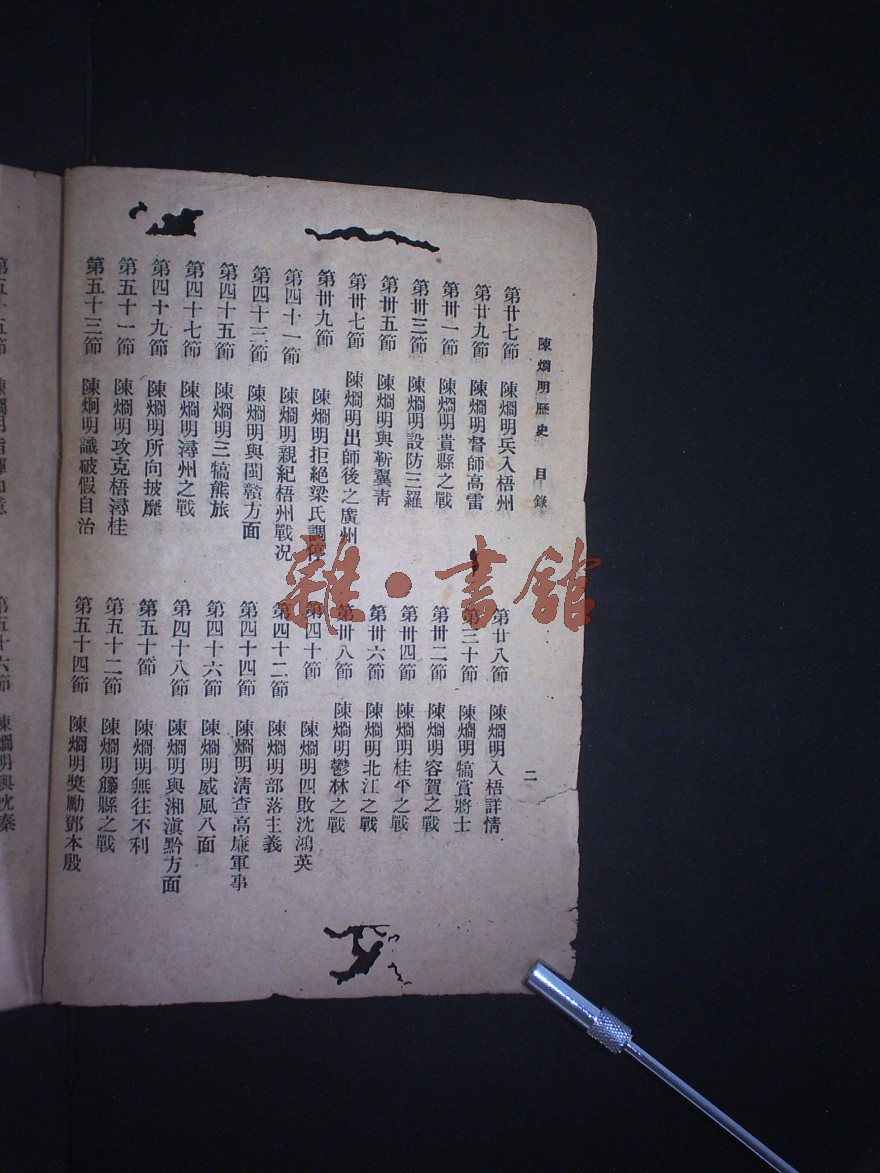 陳烱明歷史 目錄 二
第廿七節 陳烱明兵入梧州 第廿八節 陳烱明入梧詳情
第廿九節 陳烱明督師高雷 第三十節 陳烱明犒賞將士
第卅一節 陳烱明貴縣之戰 第卅二節 陳烱明容賀之戰
第卅三節 陳烱明設防三羅 第卅四節 陳烱明桂平之戰
第卅五節 陳烱明與靳翼青 第卅六節 陳烱明北江之戰
第卅七節 陳烱明出師後之廣州 第卅八節 陳烱明鬱林之戰
第卅九節 陳烱明拒絕梁氏調停 第四十節 陳烱明四敗沈鴻英
第四十一節 陳烱明親紀梧州戰况 第四十二節 陳烱明部落主義
第四十三節 陳烱明與閩贛方面 第四十四節 陳烱明清查高廉軍事
第四十五節 陳烱明三犒熊旅 第四十六節 陳烱明威風八面
第四十七節 陳烱明潯州之戰 第四十八節 陳烱明與湘滇黔方面
第四十九節 陳烱明所向披靡 第五十節 陳烱明無往不利
第五十一節 陳烱明攻克梧潯桂 第五十二節 陳烱明籐縣之戰
第五十三節 陳烱明識破假自治 第五十四節 陳烱明奬勵鄧本殷
雜·書館